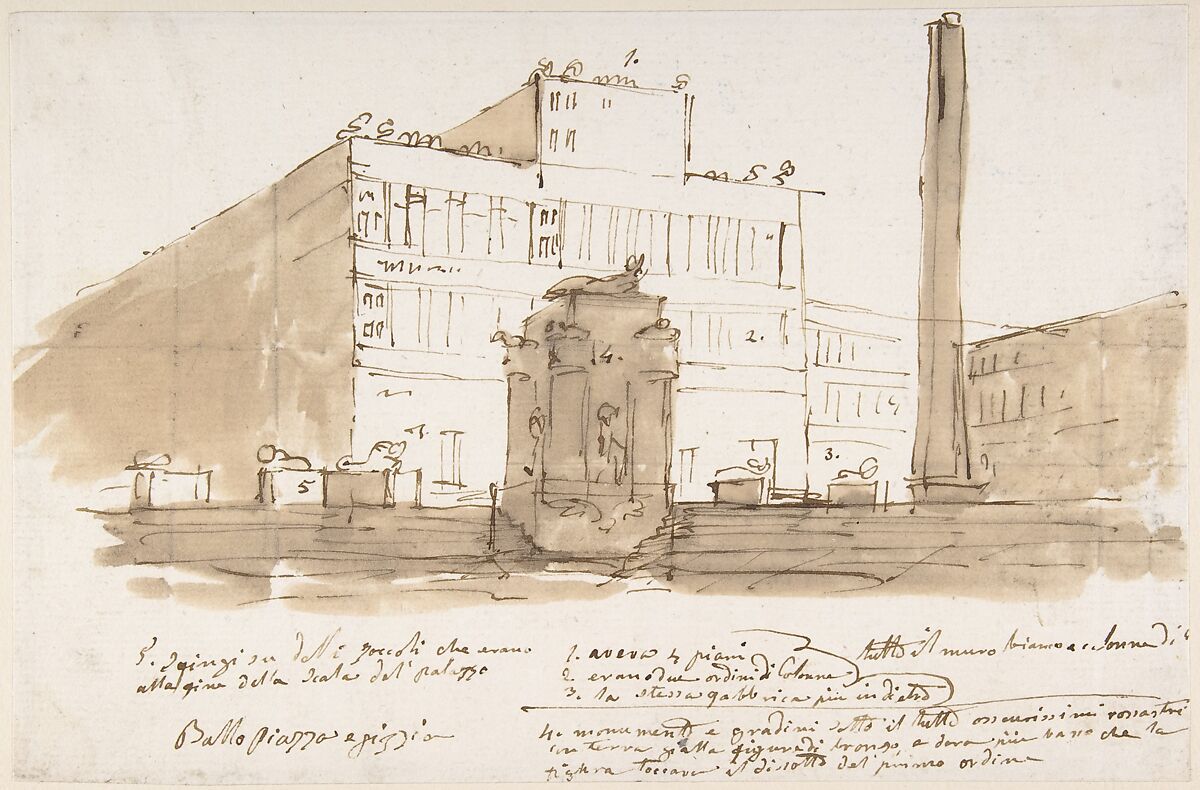 1.
2.
4.
3.
5
5. Sfingi su delli zoccoli che erano
alla fine della scala del palazzo
Ballo Piazza egizzia
1. aveva 4 piani
2. erano due ordini di Colonne
3. la stessa fabbrica più indietro
tutto il muro bianco e colonne di
4. monumento e gradini sotto il tutto oscurissimi rossastri
in terra gialla figure di bronzo, e dora più basso che la
figura toccava il dissotto del primo ordine